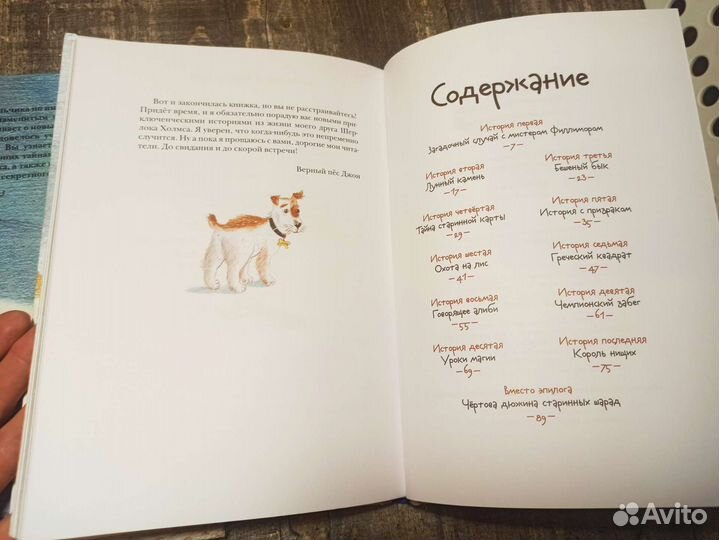 льчика по им
знаменитым
вает о новы
довелось
Вы узнает
них тайнах
ка, а также
секретного
Вот и закончилась книжка, но вы не расстраивайтесь!
Придёт время, и я обязательно порадую вас новыми при-
ключенческими историями из жизни моего друга Шер-
лока Холмса. Я уверен, что когда-нибудь это непременно
случится. Ну а пока я прощаюсь с вами, дорогие мои чита-
тели. До свидания и до скорой встречи!
Верный пёс Джои
Содержание
История первая
Загадочный случай с мистером Филлимором
-7-
История вторая
Лунный камень
-17-
История третья
Бешеный бык
-23-
История четвёртая
Тайна старинной карты
-29-
История пятая
История с призраком
-35-
История шестая
Охота на лис
-41-
История седьмая
Греческий квадрат
-47-
История восьмая
Говорящее алиби
-55-
История девятая
Чемпионский забег
-61-
История десятая
Уроки магии
-69-
История последняя
Король нищих
-75-
Вместо эпилога
Чёртова дюжина старинных шарад
-89-
Avito